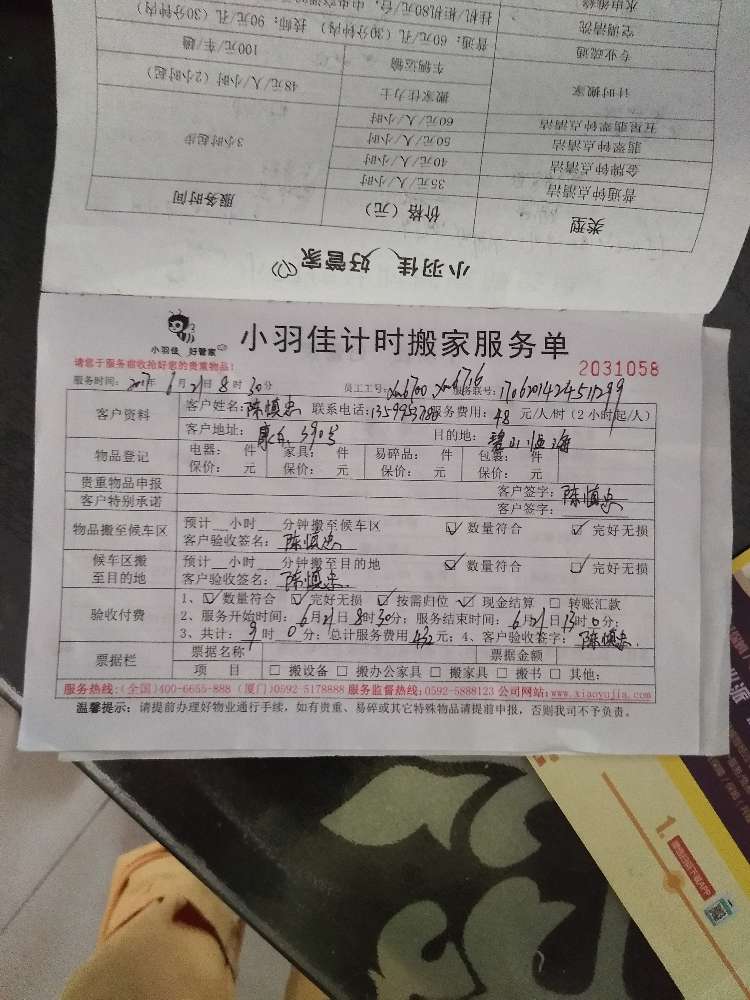 小羽佳 好管家
类型 价格（元） 服务时间
普通钟点清洁 35元/人/小时 3小时起步
金牌钟点清洁 40元/人/小时
翡翠钟点清洁 50元/人/小时
五星翡翠钟点清洁 60元/人/小时
计时搬家 搬家佳力士 48元/人/小时（2小时起）
车辆运输 100元/车/趟
专业疏通 普通：60元/孔（30分钟内） 技师：90元/孔（30分钟内）
空调清洗 挂机 柜机80元/台
水电维修
小羽佳 好管家
小羽佳计时搬家服务单
请您于服务前收拾好您的贵重物品！
2031058
服务时间：2017年6月21日8时30分 员工工号：xm6700 xm6716 服务联号：
客户资料 客户姓名：陈慎忠 联系电话： 服务费用：48元/人/时（2小时起/人）
客户地址： 目的地：
物品登记 电器： 件 家具： 件 易碎品： 件 包裹： 件
保价： 元 保价： 元 保价： 元 保价： 元
贵重物品申报 客户签字：陈慎忠
客户特别承诺 客户签字：
物品搬至候车区 预计__小时__分钟搬至候车区 ☑ 数量符合 ☑ 完好无损
客户验收签名：陈慎忠
候车区搬至目的地 预计__小时__分钟搬至目的地 ☑ 数量符合 ☑ 完好无损
客户验收签名：陈慎忠
验收付费 1、☑ 数量符合 ☑ 完好无损 ☑ 按需归位 ☑ 现金结算 □ 转账汇款
2、服务开始时间：6月21日8时30分；服务结束时间：6月21日13时0分；
3、共计：9时0分；总计服务费用432元；4、客户验收签字：陈慎忠
票据栏 票据名称 票据金额
项 目 □ 搬设备 □ 搬办公家具 □ 搬家具 □ 搬书 □ 其他：
服务热线：(全国)400-6655-888 (厦门)0592-5178888 服务监督热线：0592-5888123 公司网站：www.xiaoyujia.com
温馨提示：请提前办理好物业通行手续，如有贵重、易碎或其它特殊物品请提前申报，否则我司不予负责。
1.